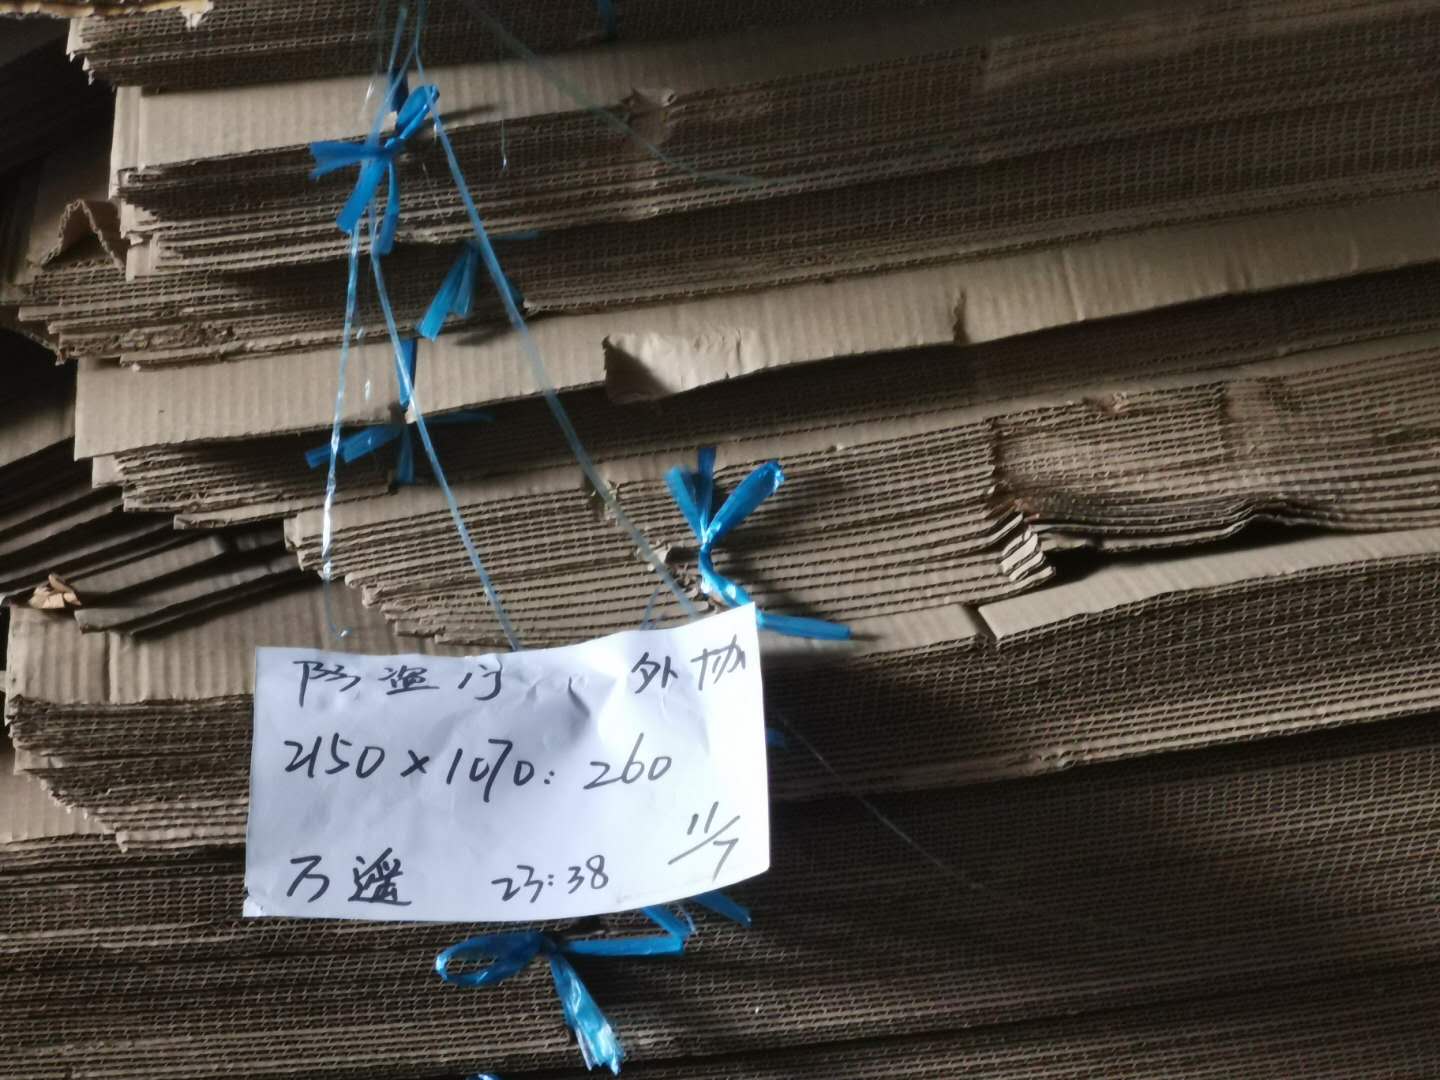 防盗门 外协
2150×1070: 260
11/7
万遥 23:38